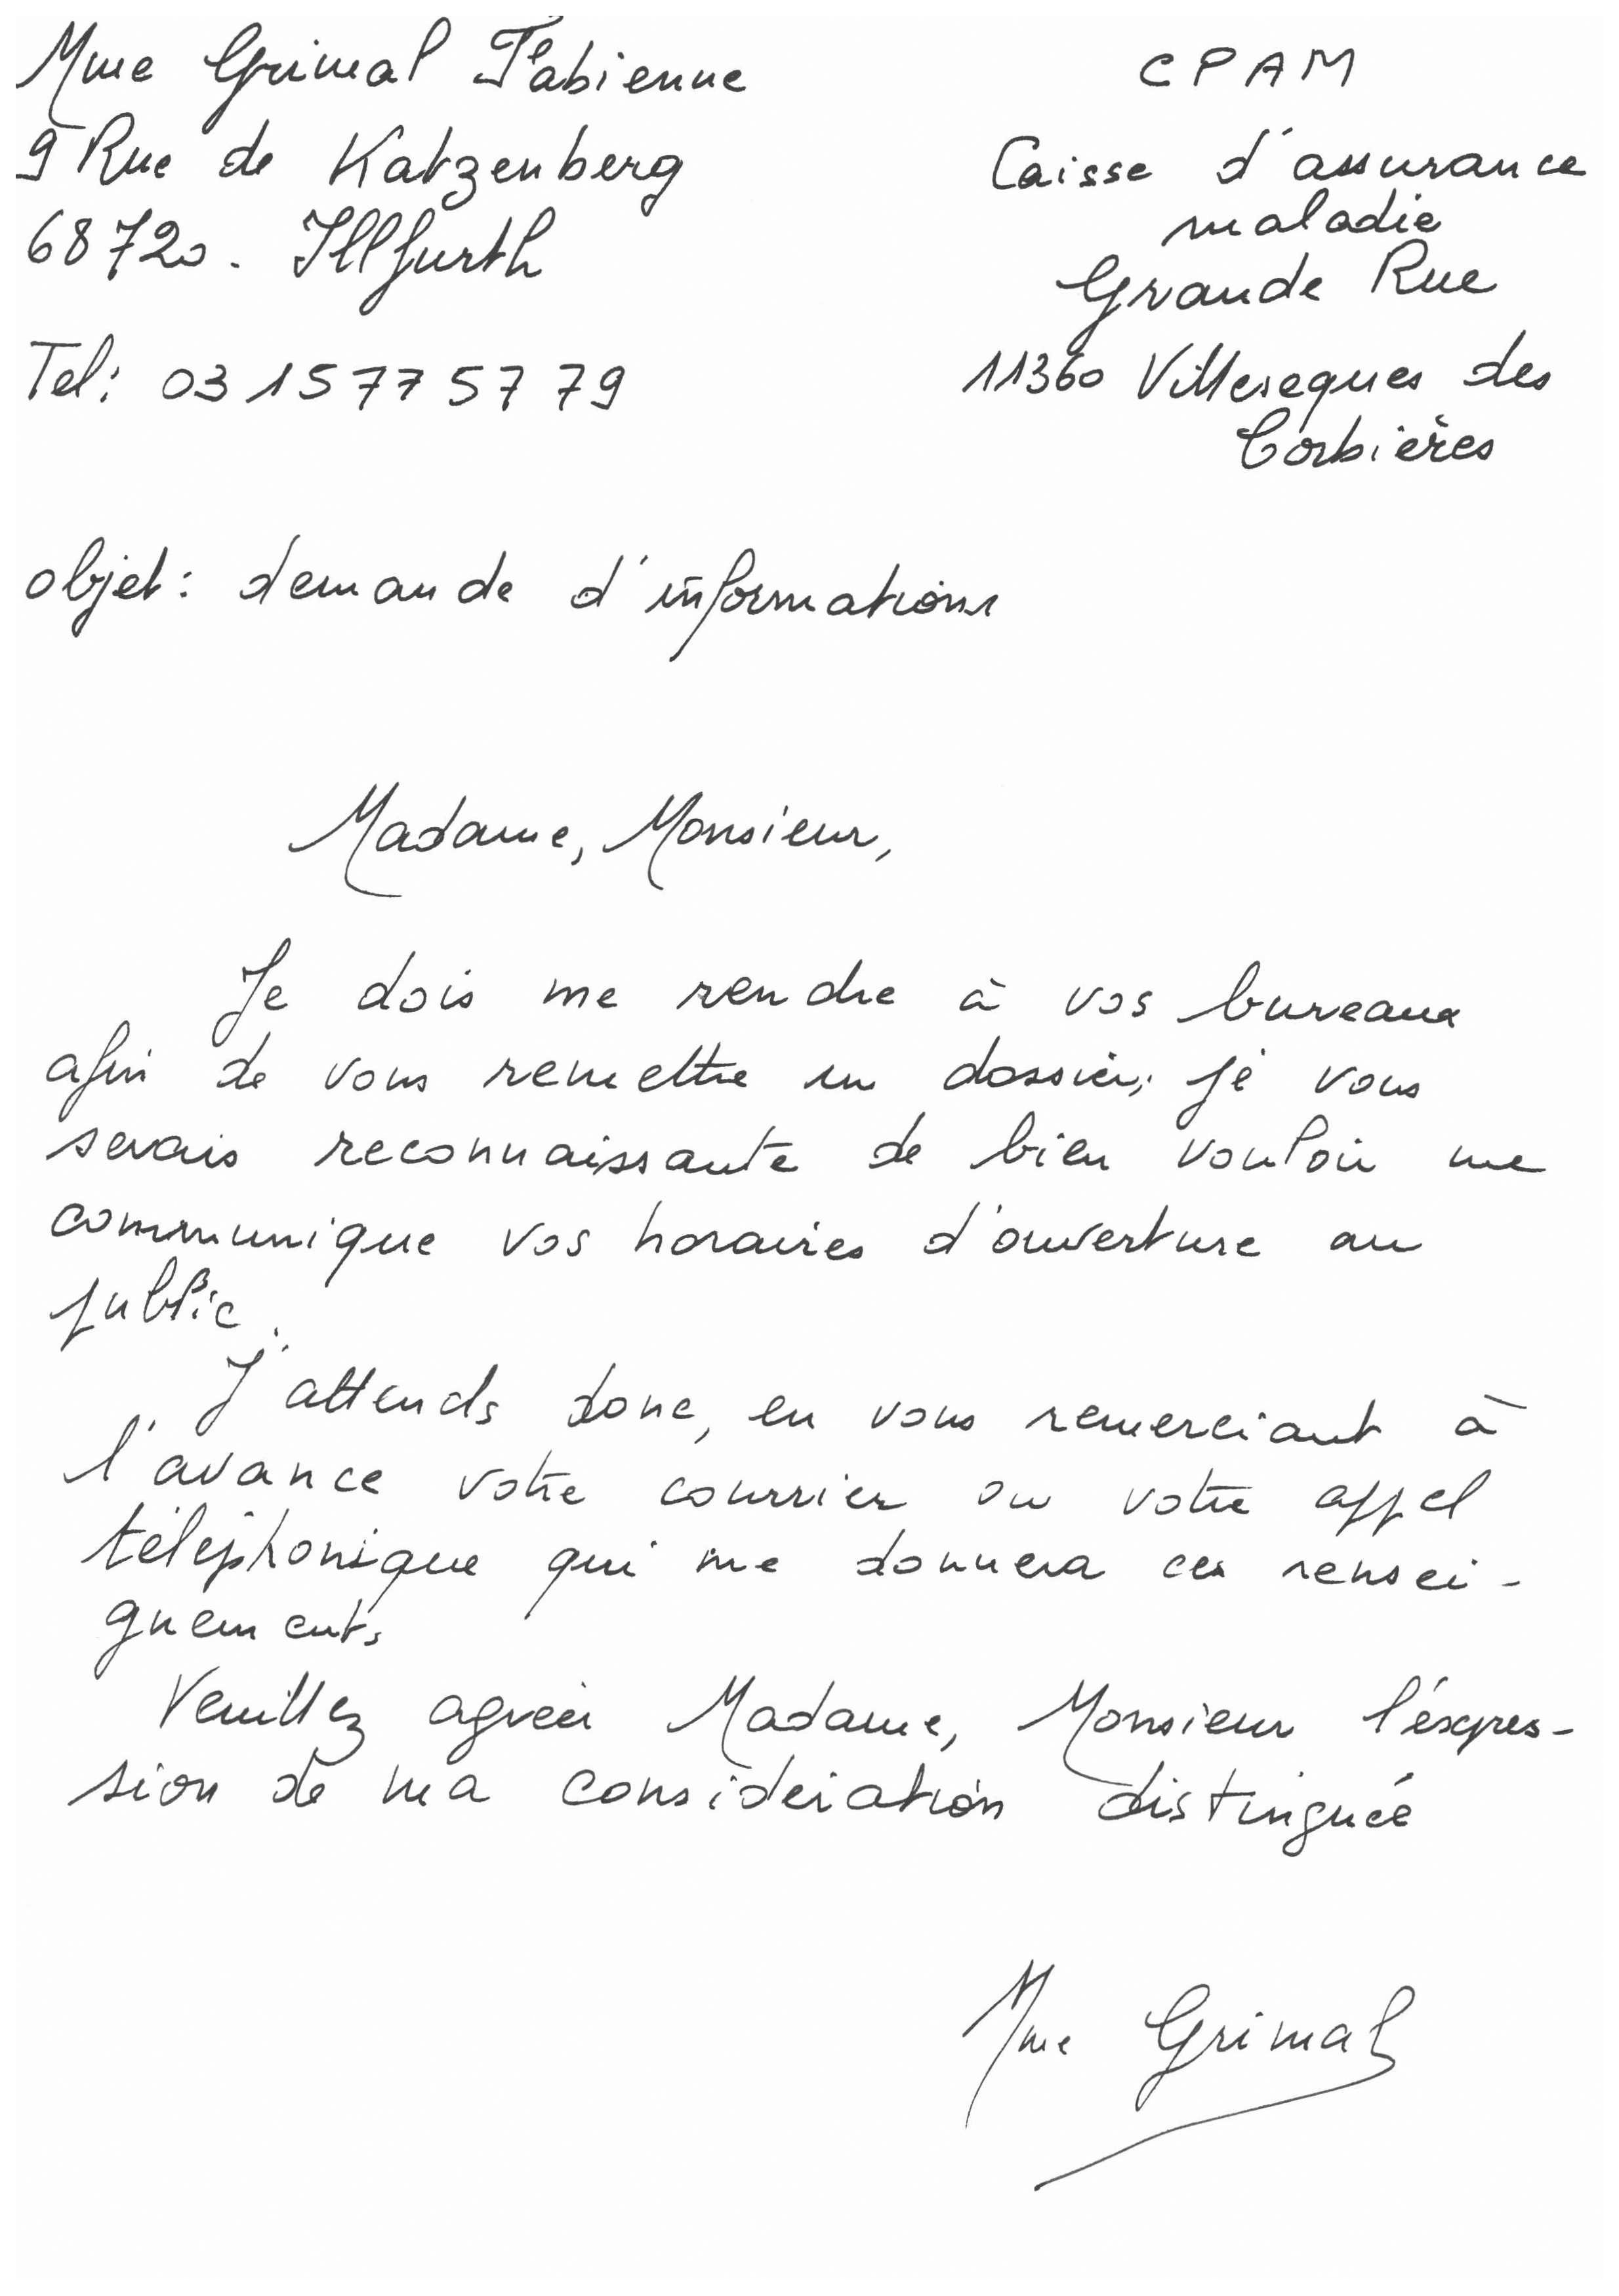 Mme Grimal Fabienne
9 Rue de Katzenberg
68720. Illfurth
Tel: 03 15 77 57 79
CPAM
Caisse d'assurance
maladie
Grande Rue
11360 Villeseques des
Corbières
objet: demande d'informations
Madame, Monsieur,
Je dois me rendre à vos bureaux
afin de vous remettre un dossier, je vous
serais reconnaissante de bien vouloir me
communique vos horaires d'ouverture au
public.
J'attends donc, en vous remerciant à
l'avance votre courrier ou votre appel
téléphonique qui me donnera ces rensei-
gnements
Veuillez agréer Madame, Monsieur l'éxpres-
sion de ma considération distinguée
Mme Grimal